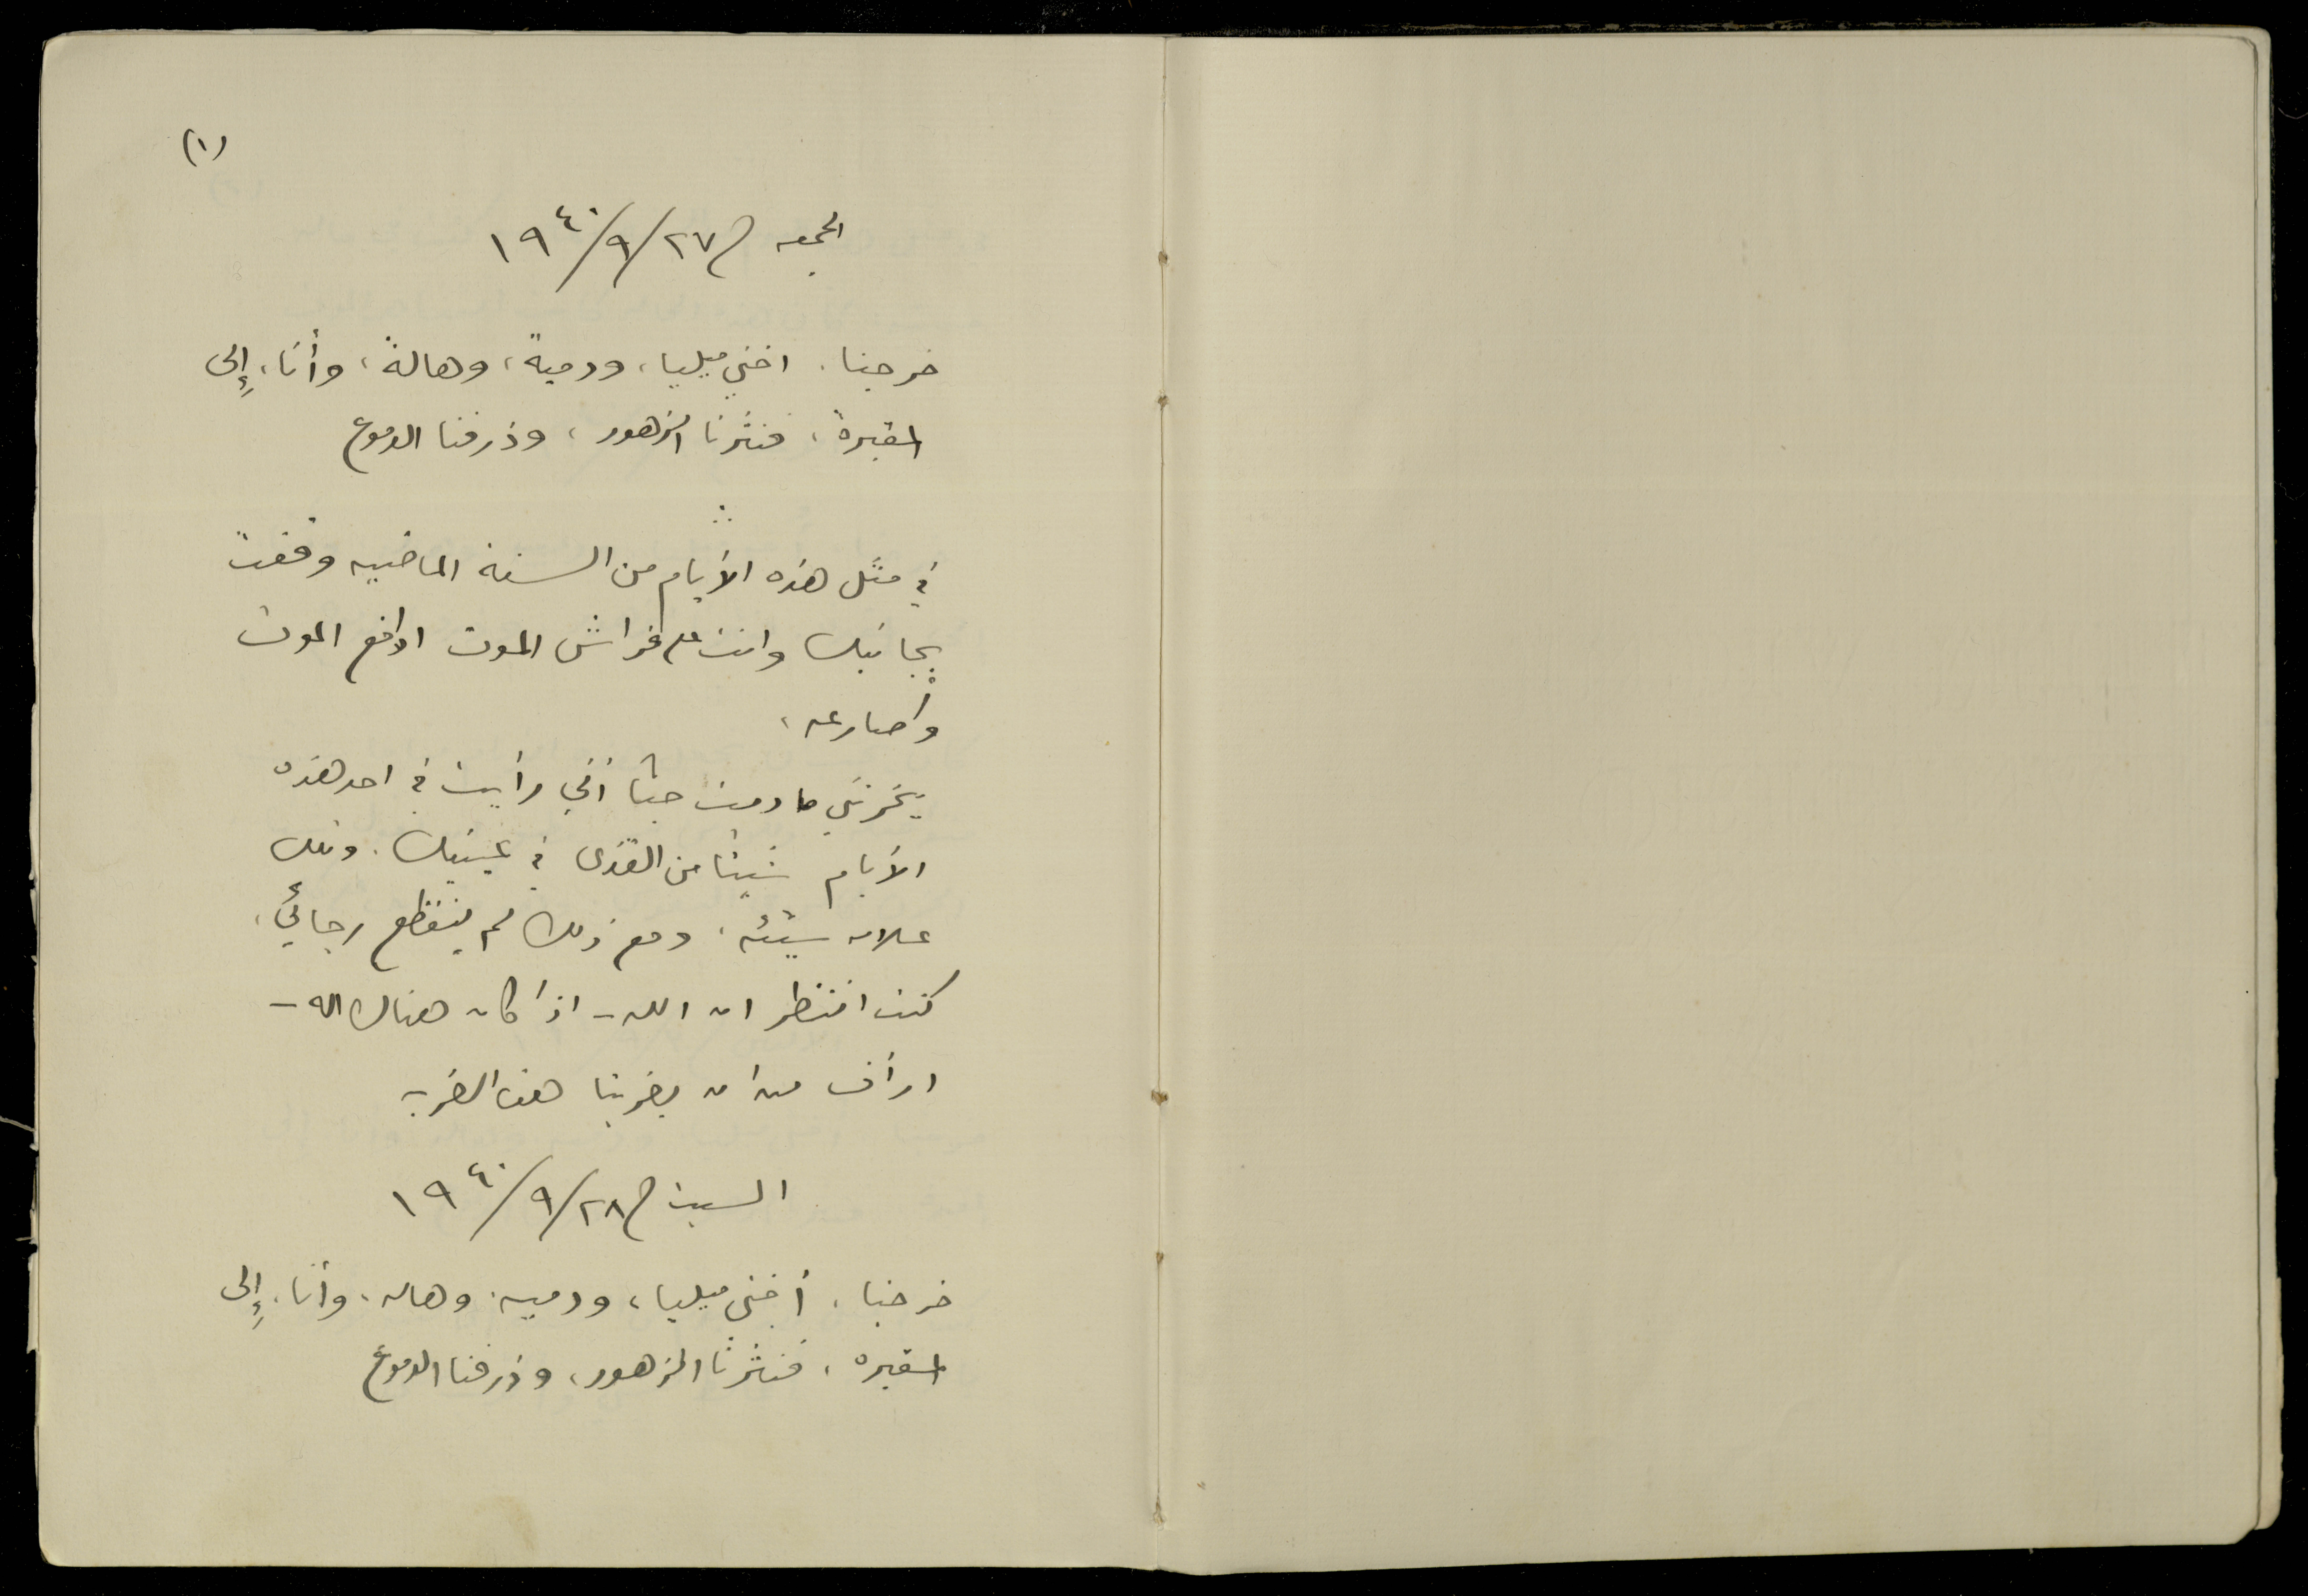 (١)
الجمعه في ٢٧/٩/١٩٤٠
خرجنا، اختي ميليا، ودمية، وهالة، وأنا، إلى
المقبرة، فنثرنا الزهور، وذرفنا الدموع
في مثل هذه الأيام من السنة الماضيه وقفت
بجانبك وانت على فراش الموت ادافع الموت
واصارعه،
يحزنني ما دمت حيا أنني رأيت في احد هذه
الأيام شيئا من القذى في عينيك. وتلك
علامه سيئه، ومع ذلك لم ينقطع رجائي،
كنت انتظر ان الله - اذا كان هناك اله -
ارأف من ان يضربنا هذه الضربه
السبت في ٢٨/٩/١٩٤٠
خرجنا، أختي ميليا، ودميه، وهاله، وأنا، إلى
المقبره، فنثرنا الزهور، وذرفنا الدموع